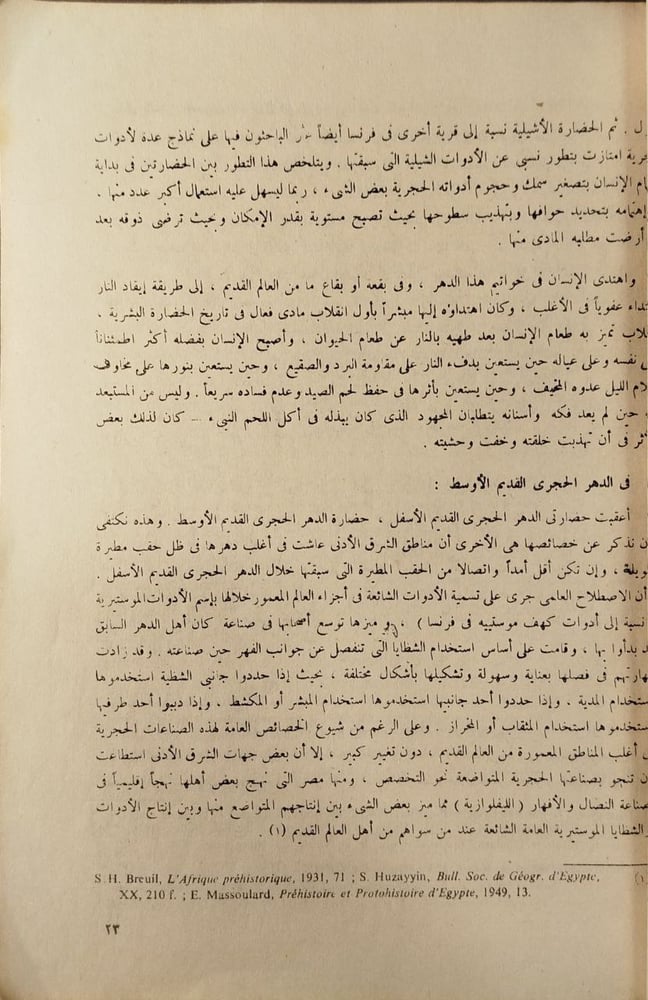 ول . ثم الحضارة الأشيلية نسبة إلى قرية أخرى فى فرنسا أيضاً عثر الباحثون فيها على نماذج عدة لأدوات
جرية امتازت بتطور نسبى عن الأدوات الشيلية التى سبقتها . ويتلخص هذا التطور بين الحضارتين فى بداية
ام الإنسان بتصغير سمك وحجوم أدواته الحجرية بعض الشىء ، ربما ليسهل عليه استعمال أكبر عدد منها .
إهتمامه بتحديد حوافها وبتهذيب سطوحها بحيث تصبح مستوية بقدر الإمكان وبحيث ترضى ذوقه بعد
أرضت مطالبه المادى منها .
واهتدى الإنسان فى خواتيم هذا الدهر ، وفى بقعه أو بقاع ما من العالم القديم ، إلى طريقة إيقاد النار
تداء عفوياً فى الأغلب ، وكان اهتداوه إليها مبشراً بأول انقلاب مادى فعال فى تاريخ الحضارة البشرية .
قلاب تميز به طعام الإنسان بعد طهيه بالنار عن طعام الحيوان ، وأصبح الإنسان بفضله أكثر اطمئناناً
ى نفسه وعلى عياله حين يستعين بدفء النار على مقاومة البرد والصقيع ، وحين يستعين بنورها على مخاوف
لام الليل عدوه المخيف ، وحين يستعين بأثرها فى حفظ لحم الصيد وعدم فساده سريعاً . وليس من المستبعد
حين لم يعد فكه وأسنانه يتطلبان المجهود الذى كان يبذله فى أكل اللحم النىء — كان لذلك بعض
ثر فى أن تهذبت خلقته وخفت وحشيته .
فى الدهر الحجرى القديم الأوسط :
أعقبت حضارتى الدهر الحجرى القديم الأسفل ، حضارة الدهر الحجرى القديم الأوسط . وهذه نكتفى
ن نذكر عن خصائصها هى الأخرى أن مناطق الشرق الأدنى عاشت فى أغلب دهرها فى ظل حقب مطيرة
ويلة ، وإن تكن أقل أمداً واتصالا من الحقب المطيرة التى سبقتها خلال الدهر الحجرى القديم الأسفل .
أن الاصطلاح العلمى جرى على تسمية الأدوات الشائعة فى أجزاء العالم المعمور خلالها بإسم الأدوات الموستيرية
نسبة إلى أدوات كهف موستييه فى فرنسا ) ، وميزها توسع أصحابها فى صناعة كان أهل الدهر السابق
د بدأوا بها ، وقامت على أساس استخدام الشظايا التى تنفصل عن جوانب الفهر حين صناعته . وقد زادت
هارتهم فى فصلها بعناية وسهولة وتشكيلها بأشكال مختلفة ، بحيث إذا حددوا جانبى الشظية استخدموها
ستخدام المدية . وإذا حددوا أحد جانبيها استخدموها استخدام المبشر أو المكشط . وإذا دببوا أحد طرفيها
ستخدموها استخدام المثقاب أو المخراز . وعلى الرغم من شيوع الخصائص العامة لهذه الصناعات الحجرية
ى أغلب المناطق المعمورة من العالم القديم ، دون تغيير كبير ، إلا أن بعض جهات الشرق الأدنى استطاعت
ن تنحو بصناعتها الحجرية المتواضعة نحو التخصص ، ومنها مصر التى نهج بعض أهلها نهجاً إقليمياً فى
صناعة النصال والأفهار ( الليفلوازية ) مما ميز بعض الشىء بين إنتاجهم المتواضع منها وبين إنتاج الأدوات
الشظايا الموستيرية العامة الشائعة عند من سواهم من أهل العالم القديم (١) .
(١
S.H. Breuil, L'Afrique préhistorique, 1931, 71 ; S. Huzayyin, Bull. Soc. de Géogr. d'Egypte,
XX, 210 f. ; E. Massoulard, Préhistoire et Protohistoire d'Egypte, 1949, 13.
٢٣